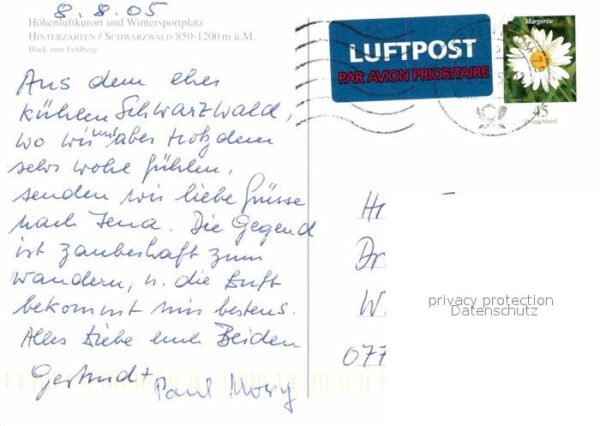 8.8.05
Höhenluftkurort und Wintersportplatz
HINTERZARTEN / SCHWARZWALD 850-1200 m ü.M.
Blick zum Feldberg
Aus dem eher
kühlen Schwarzwald,
wo wir uns aber trotzdem
sehr wohl fühlen,
senden wir liebe Grüsse
nach Jena. Die Gegend
ist zauberhaft zum
wandern, u. die Luft
bekommt uns bestens.
Alles Liebe euch Beiden
Gertrud +
Paul
LUFTPOST
PAR AVION PRIORITAIRE
Margerite
45
Deutschland
H
Dr
W
077
privacy protection
Datenschutz